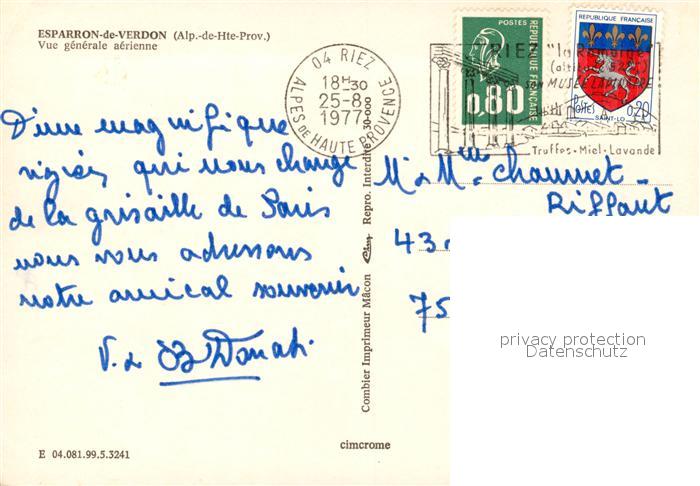 ESPARRON-de-VERDON (Alp.-de-Hte-Prov.)
Vue générale aérienne
04 RIEZ
18H30
25-8
1977
ALPES DE HAUTE PROVENCE
POSTES
0,80
RÉPUBLIQUE FRANÇAISE
REPUBLIQUE FRANÇAISE
POSTES
SAINT-LO
0,20
RIEZ "la Romaine"
son MUSÉE LAPIDAIRE
Truffes-Miel-Lavande
D'une magnifique
région qui nous change
de la grisaille de Paris
nous vous adressons
notre amical souvenir
V. &
M & Mme Chaumet-
Riffaut
43
75
Combier Imprimeur Mâcon Cim Repro. Interdite 30-000
privacy protection
Datenschutz
cimcrome
E 04.081.99.5.3241